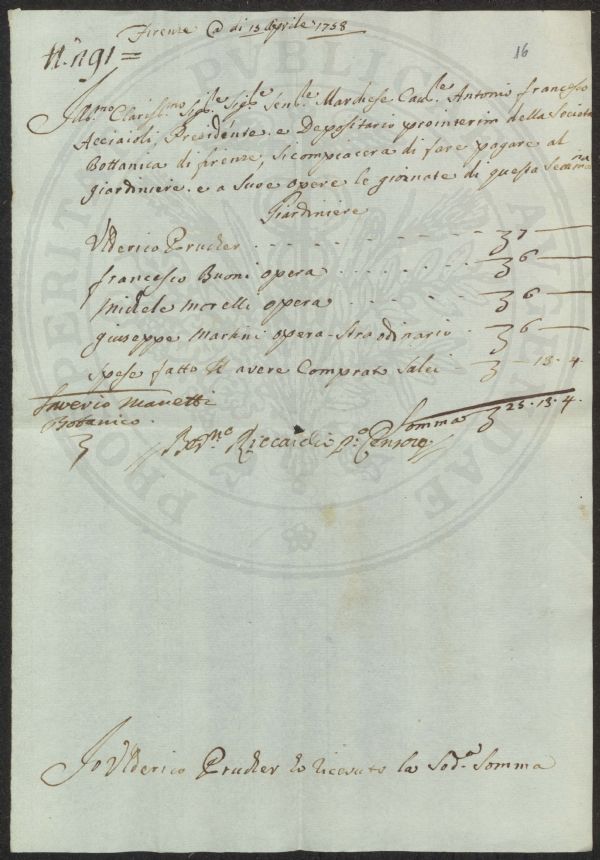 Firenze @ di 15 Aprile 1758
16
N.° 191 =
Ill.mo Clariss.mo Sig.le Sig.le Sen.le Marchese Cav.le Antonio francesco
Acciaioli, Presidente e Depositario prointerim della Societa
Bottanica di firenze, Si compiacerà di fare pagare al
giardiniere e a Sue opere le giornate di questa Settimana
Giardiniere
Ulderico Prucker . . . . . . . 7 —
francesco Buoni opera . . . . . . 6 —
Michele Morelli opera . . . . . . 6 —
giuseppe Martini opera Straordinario . 6 —
Spese fatto avere Comprato Salci — 13. 4
Somma 25. 13. 4.
Saverio Manetti
Botanico.
Riccardi P.o Censore
Io Ulderico Prucker ho ricevuto la Sod.a Somma
PROSPERITATI PVBLICAE AVGENDAE